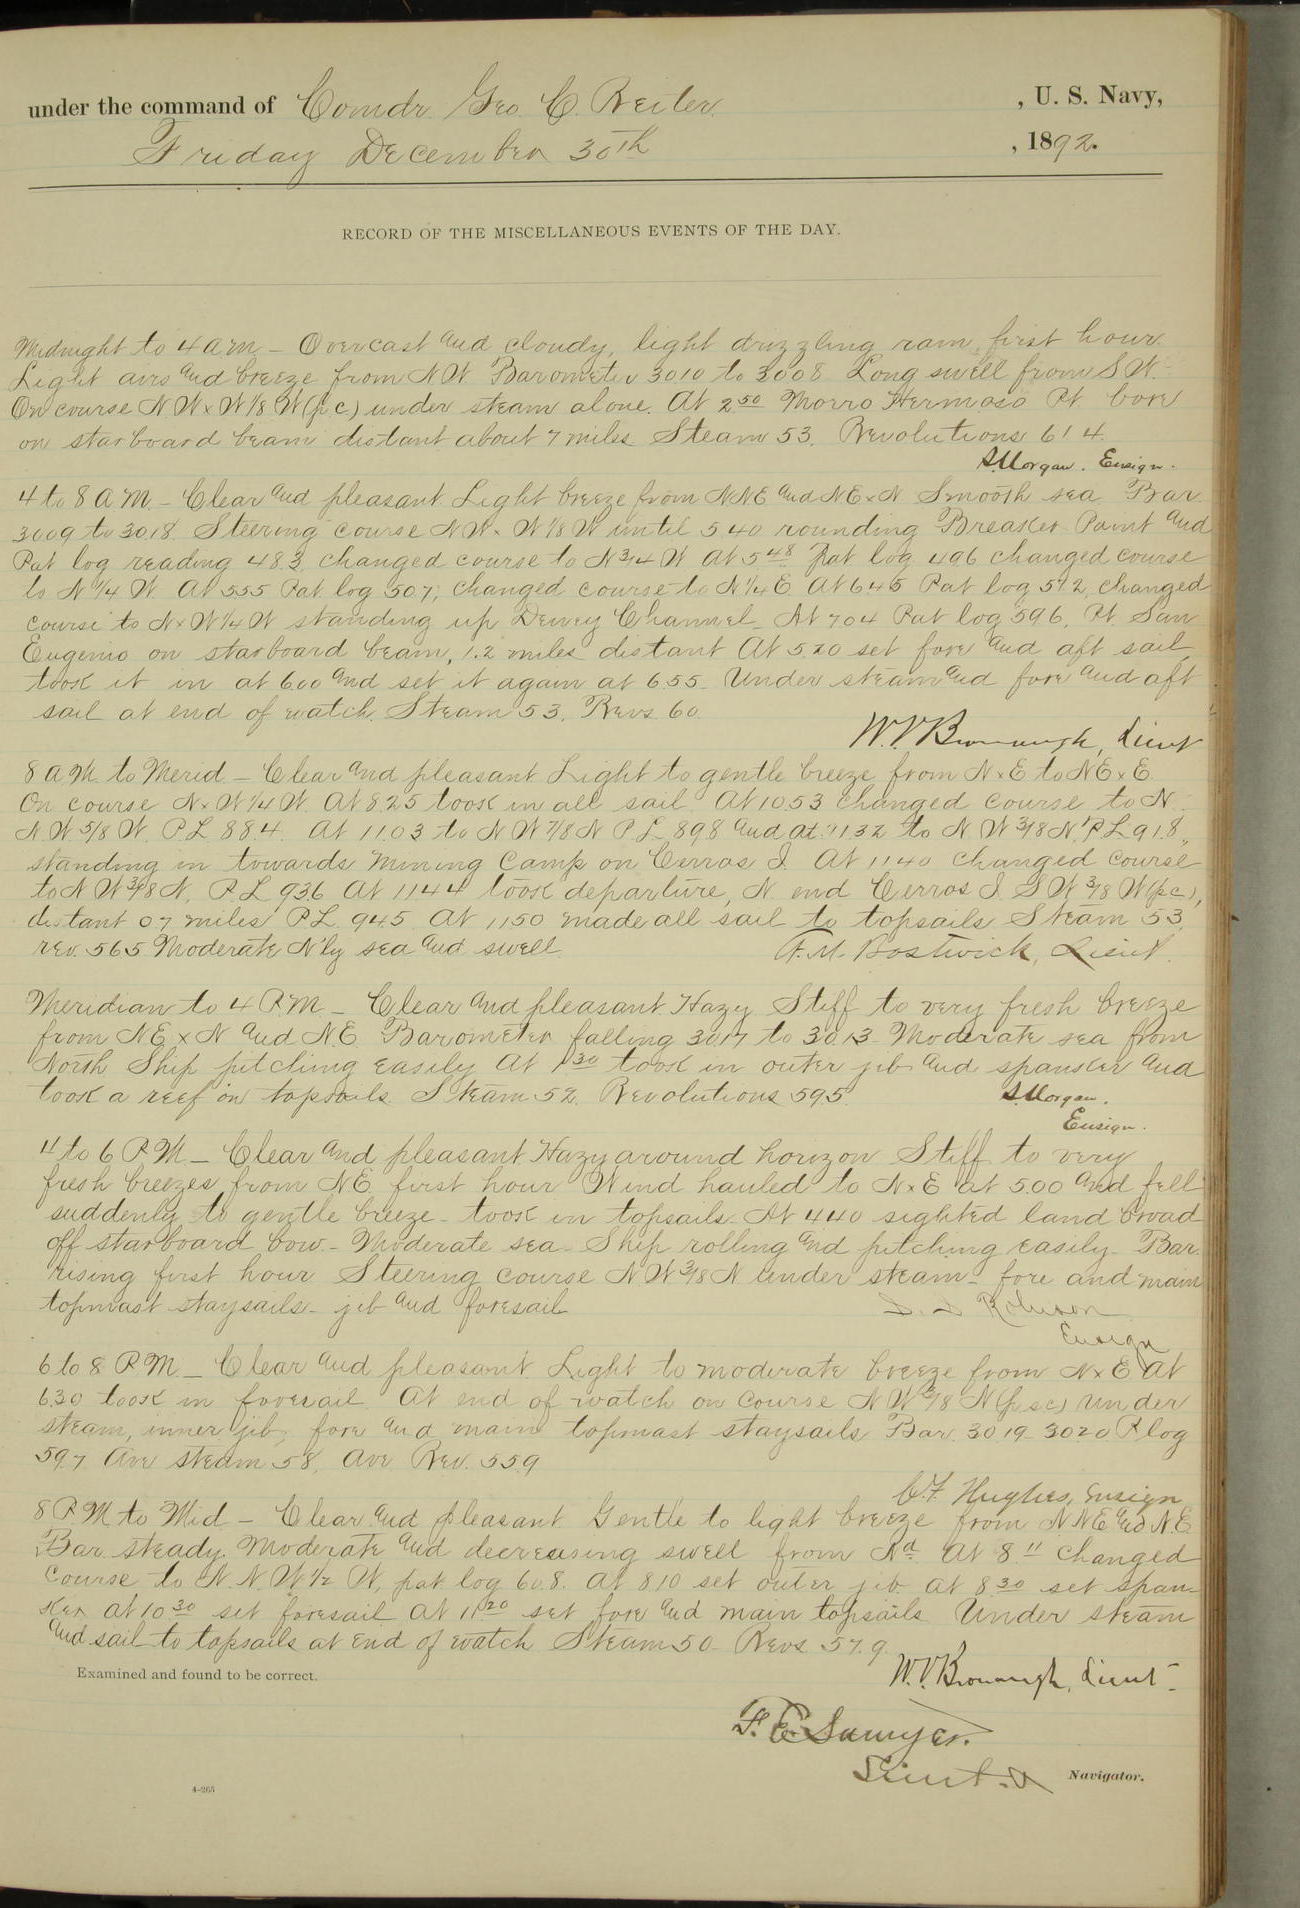 under the command of Comdr. Geo. C. Reiter, U. S. Navy,
Friday December 30th, 1892.
RECORD OF THE MISCELLANEOUS EVENTS OF THE DAY.
Midnight to 4 AM – Overcast and cloudy, light drizzling rain, first hour.
Light airs and breeze from NW. Barometer 30 10 to 30 08 Long swell from SW.
On course NW x W 1/8 W (p c) under steam alone. At 2 50 Morro Hermoso Pt. bore
on starboard beam distant about 7 miles Steam 53. Revolutions 61 4.
S. Morgan. Ensign.
4 to 8 AM – Clear and pleasant Light breeze from NNE and NE x N Smooth sea Bar.
30 09 to 30.18. Steering course NW x W 1/8 W until 5 40 rounding Breaker Point and
Pat log reading 48.3 changed course to N 3/4 W at 5 48 Pat log 49 6 changed course
to N 1/4 W. At 5 55 Pat log 50 7, changed course to N 1/4 E. At 6 45 Pat log 57.2, changed
course to N x W 1/4 W standing up Dewey Channel. At 7 04 Pat log 59 6, Pt. San
Eugenio on starboard beam, 1.2 miles distant At 5.20 set fore and aft sail,
took it in at 6 00 and set it again at 6 55. Under steam and fore and aft
sail at end of watch. Steam 53. Revs 60
W. V. Bronaugh, Lieut
8 AM to Merid – Clear and pleasant Light to gentle breeze from N x E to NE x E.
On course N x W 1/4 W. At 8.25 took in all sail. At 10 53 changed course to N.
N.W 5/8 W. PL 88 4. At 11.03 to NW 7/8 N PL 89 8 and at 11 32 to NW 3/8 N. PL 91.8,
standing in towards Mining Camp on Cerros I. At 11 40 changed course
to NW 3/8 N, P.L 93 6 At 11 44 took departure, N. end Cerros I. SW 3/8 W (p c),
distant 0 7 miles PL 94 5 At 11 50 made all sail to topsails Steam 53,
rev. 56 5 Moderate N'ly sea and swell
F. M. Bostwick, Lieut.
Meridian to 4 PM – Clear and pleasant. Hazy Stiff to very fresh breeze
from NE x N and NE. Barometer falling 30 17 to 30.13. Moderate sea from
North Ship pitching easily At 1 30 took in outer jib and spanker and
took a reef in topsails. Steam 52. Revolutions 59 5.
S. Morgan.
Ensign.
4 to 6 PM – Clear and pleasant. Hazy around horizon Stiff to very
fresh breezes from NE first hour Wind hauled to N x E at 5.00 and fell
suddenly to gentle breeze – took in topsails – At 4 40 sighted land broad
off starboard bow – Moderate sea – Ship rolling and pitching easily – Bar.
rising first hour Steering course NW 3/8 N under steam – fore and main
topmast staysails – jib and foresail
Robison
Ensign
6 to 8 PM – Clear and pleasant Light to moderate breeze from N x E At
6 30 took in foresail. At end of watch on course NW 3/8 N (p s c) under
steam, inner jib, fore and main topmast staysails Bar. 30 19 – 30 20 P log
59.7 Ave steam 58, Ave Rev. 55 9
C. F. Hughes, Ensign
8 PM to Mid – Clear and pleasant Gentle to light breeze from NNE and N.E.
Bar steady Moderate and decreasing swell from Nd. At 8 11 changed
course to N.N.W 1/2 W, pat log 60 8. At 8 10 set outer jib at 8 30 set span-
ker At 10 30 set foresail At 11 20 set fore and main topsails Under steam
and sail to topsails at end of watch Steam 50 – Revs 57.9.
W. V. Bronaugh, Lieut.
Examined and found to be correct.
F. E. Sawyer.
Lieut. Navigator.
4–265